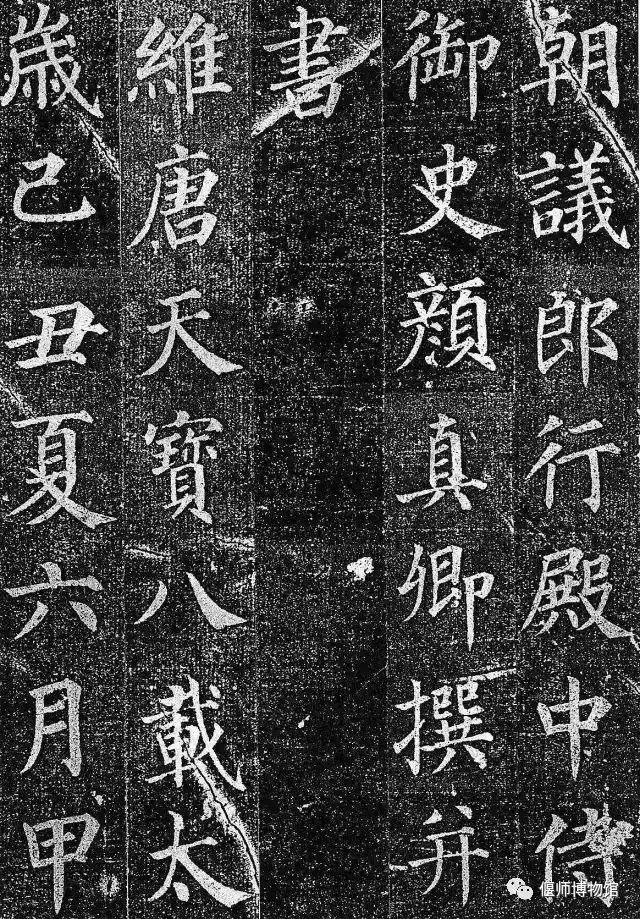 朝議郎行殿中侍
御史顏真卿撰并
書
維唐天寶八載太
歲己丑夏六月甲
偃师博物馆